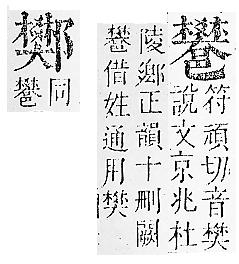 符頑切音樊
說文京兆杜
陵鄉正韻十刪闕
借姓通用樊
同